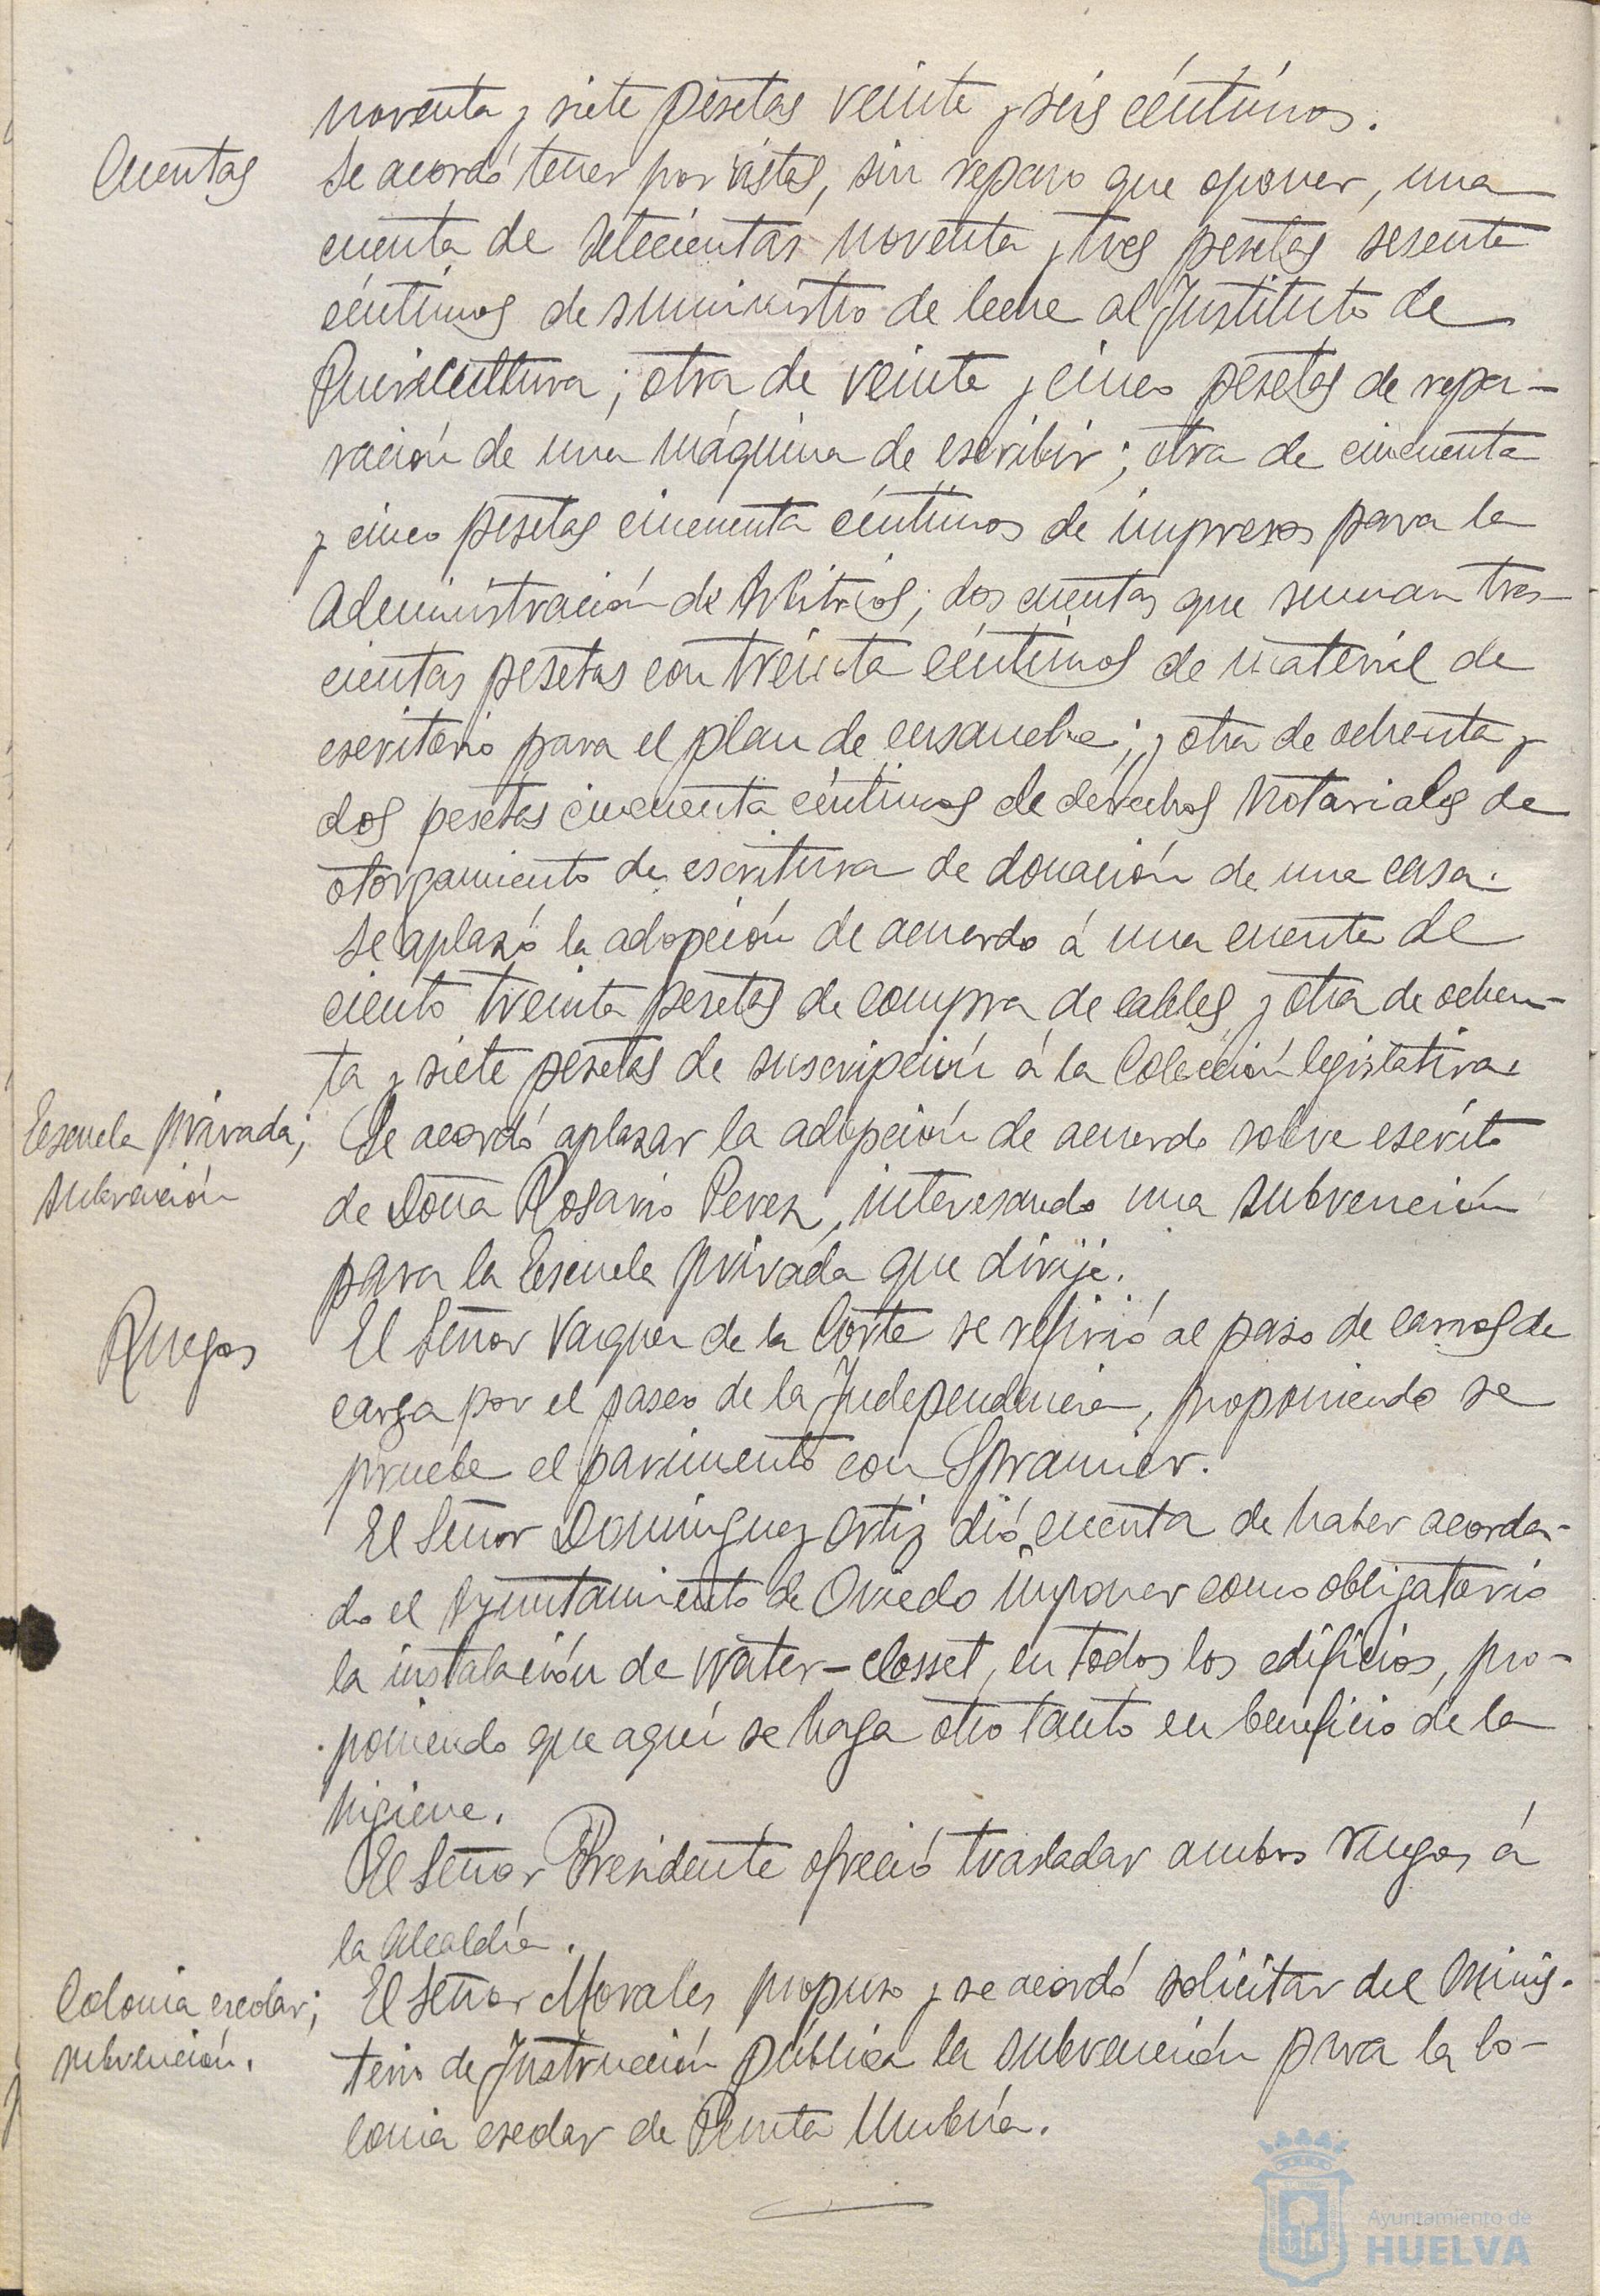 noventa y siete pesetas veinte y seis céntimos.
Cuentas
Se acordó tener por vistas, sin reparo que oponer, una
cuenta de setecientas noventa y tres pesetas sesenta
céntimos de suministro de leche al Instituto de
Puericultura; otra de veinte y cinco pesetas de repa-
ración de una máquina de escribir; otra de cincuenta
y cinco pesetas cincuenta céntimos de impresos para la
Administración de Arbitrios; dos cuentas que suman tres-
cientas pesetas con treinta céntimos de material de
escritorio para el plan de ensanche; y otra de ochenta y
dos pesetas cincuenta céntimos de derechos Notariales de
otorgamiento de escritura de donación de una casa.
Se aplazó la adopción de acuerdo á una cuenta de
ciento treinta pesetas de compra de cables y otra de ochen-
ta y siete pesetas de suscripción á la Colección legislativa.
Escuela privada;
subvención
Se acordó aplazar la adopción de acuerdo sobre escrito
de Doña Rosario Perez, interesando una subvención
para la Escuela privada que dirije.
Ruegos
El Señor Vazquez de la Corte se refirió al paso de carros de
carga por el paseo de la Independencia, proponiendo se
pruebe el pavimento con
El Señor Dominguez Ortiz dió cuenta de haber acorda-
do el Ayuntamiento de Oviedo imponer como obligatorio
la instalación de Water-closset, en todos los edificios, pro-
poniendo que aquí se haga otro tanto en beneficio de la
higiene.
El Señor Presidente ofreció trasladar ambos ruegos á
la Alcaldía.
Colonia escolar;
subvención.
El Señor Morales propuso y se acordó solicitar del Minis-
terio de Instrucción pública la subvención para la Co-
lonia escolar de Punta Umbría.
Ayuntamiento de
HUELVA